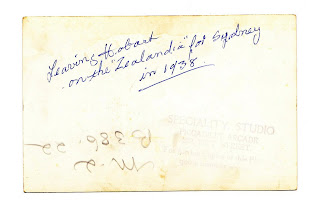 Leaving Hobart
on the "Zealandia" for Sydney
in 1938.
SPECIALITY STUDIO
B386.22
M-2